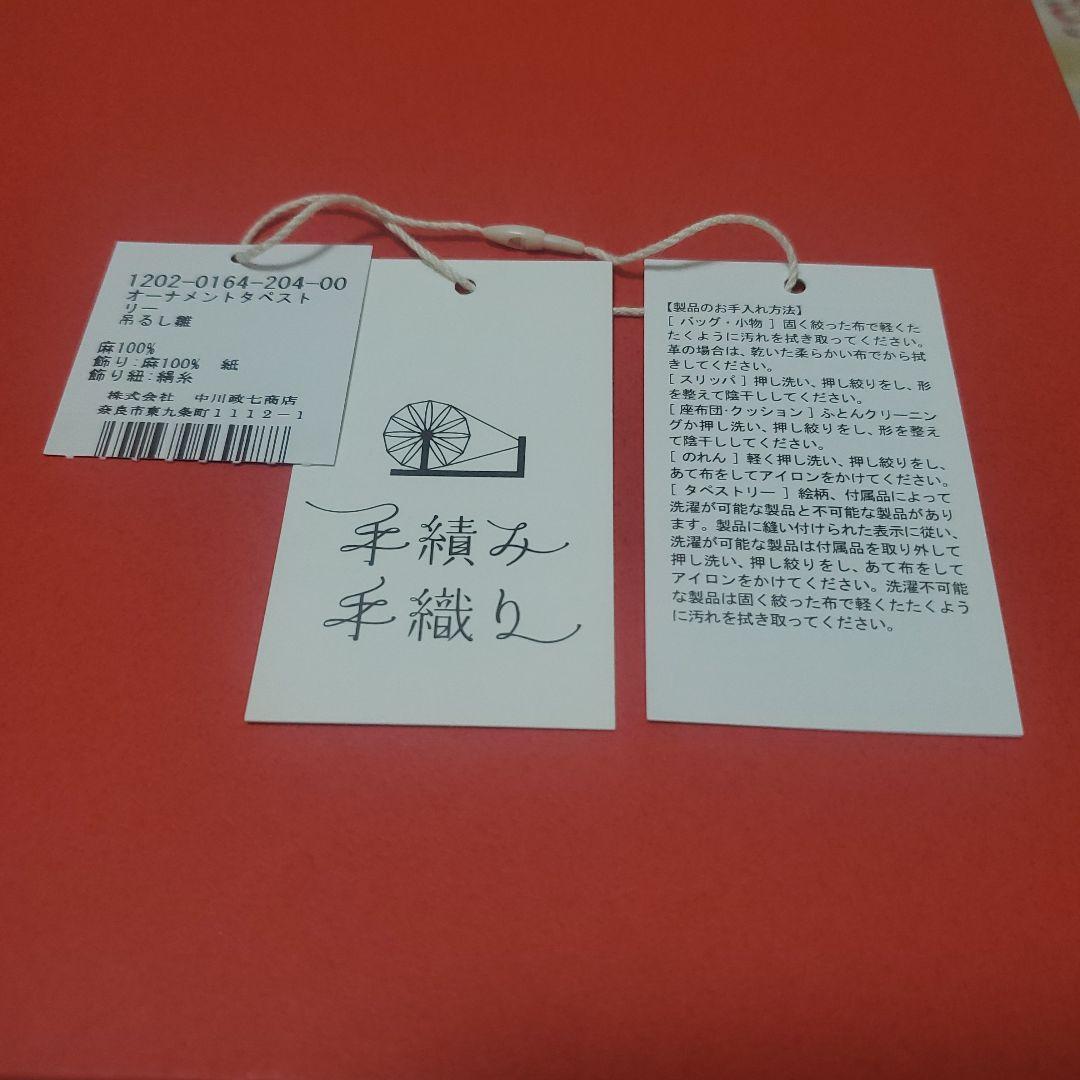 1202-0164-204-00
オーナメントタペスト
リー
吊るし雛
麻100%
飾り:麻100% 紙
飾り紐:絹糸
株式会社 中川政七商店
奈良市東九条町1112-1
手績み
手織り
【製品のお手入れ方法】
[ バッグ・小物 ] 固く絞った布で軽くた
たくように汚れを拭き取ってください。
革の場合は、乾いた柔らかい布でから拭
きしてください。
[ スリッパ ] 押し洗い、押し絞りをし、形
を整えて陰干ししてください。
[ 座布団・クッション ] ふとんクリーニン
グか押し洗い、押し絞りをし、形を整え
て陰干ししてください。
[ のれん ] 軽く押し洗い、押し絞りをし、
あて布をしてアイロンをかけてください。
[ タペストリー ] 絵柄、付属品によって
洗濯が可能な製品と不可能な製品があり
ます。製品に縫い付けられた表示に従い、
洗濯が可能な製品は付属品を取り外して
押し洗い、押し絞りをし、あて布をして
アイロンをかけてください。洗濯不可能
な製品は固く絞った布で軽くたたくよう
に汚れを拭き取ってください。